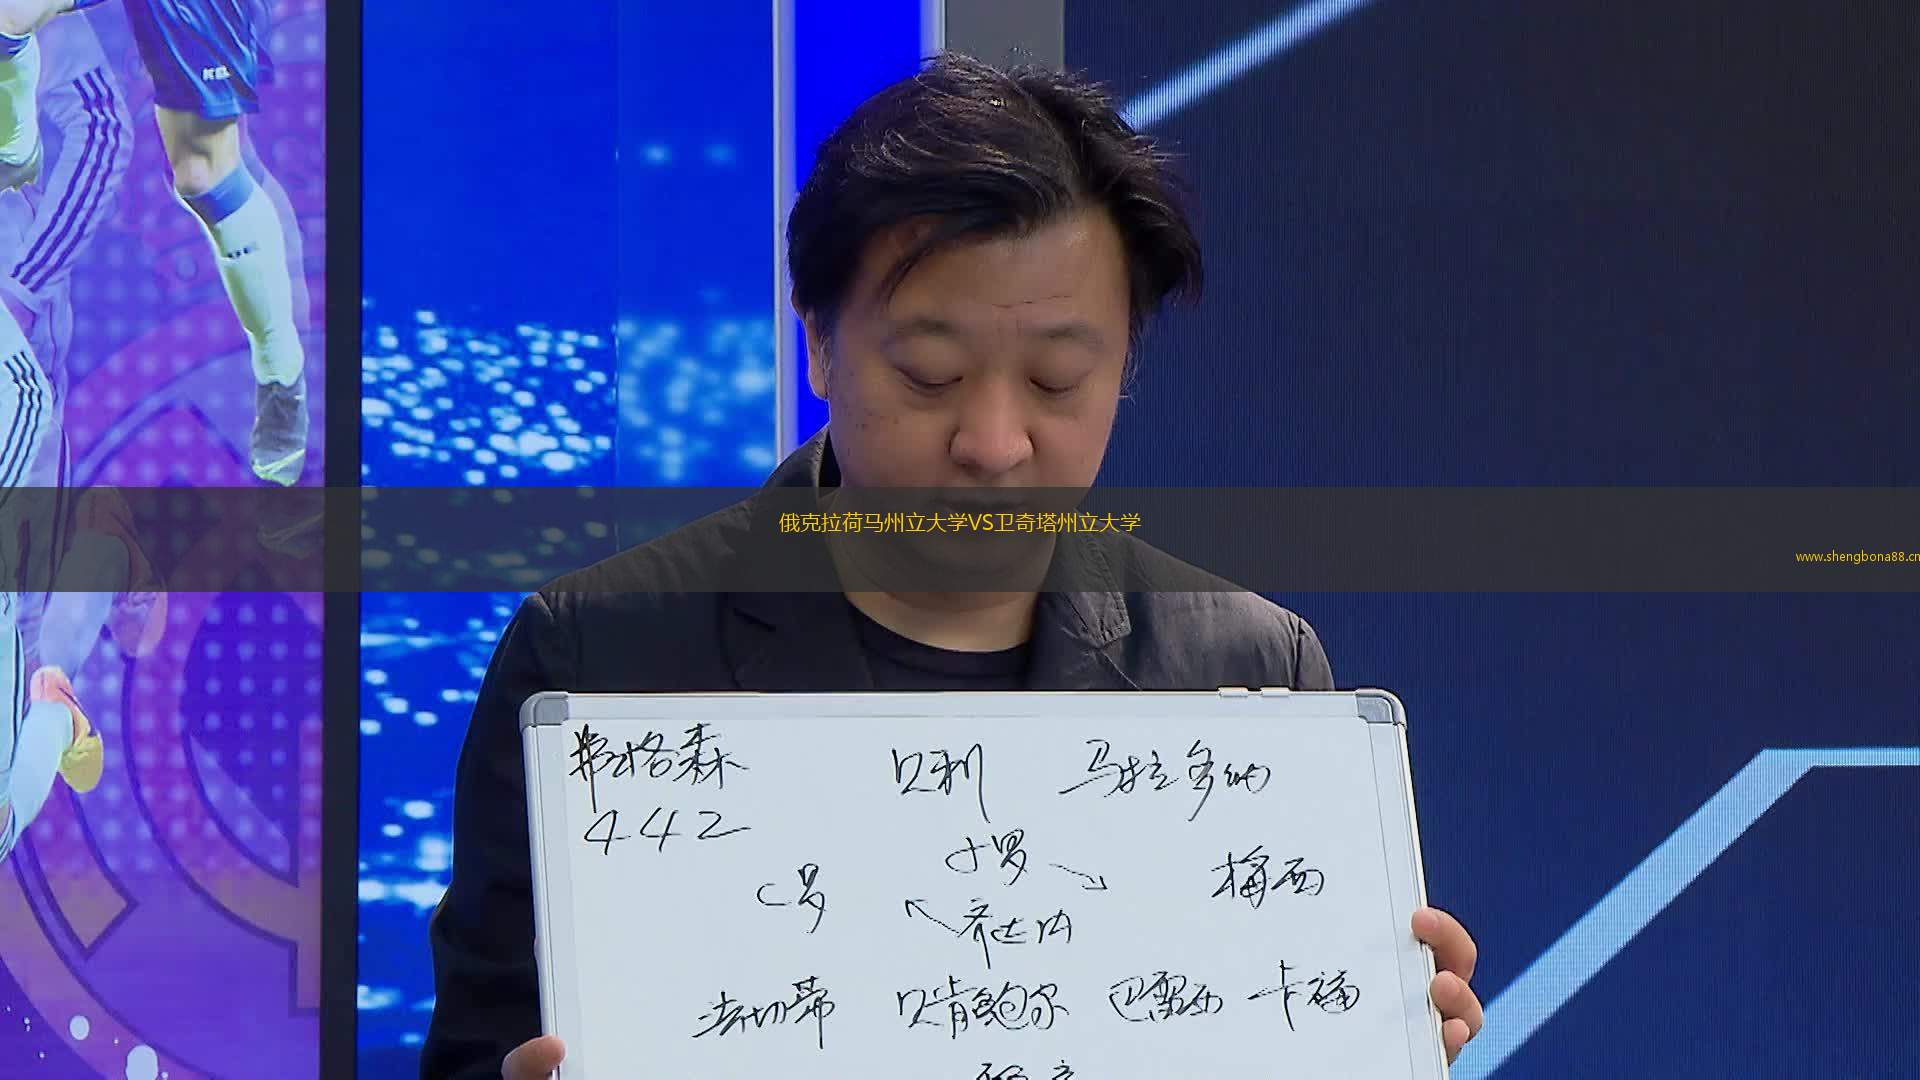 KEL
俄克拉荷马州立大学VS卫奇塔州立大学
www.shengbona88.cn
弗格森 贝利 马拉多纳
442
小罗
C罗 梅西
齐达内
法切蒂 贝肯鲍尔 巴雷西 卡福